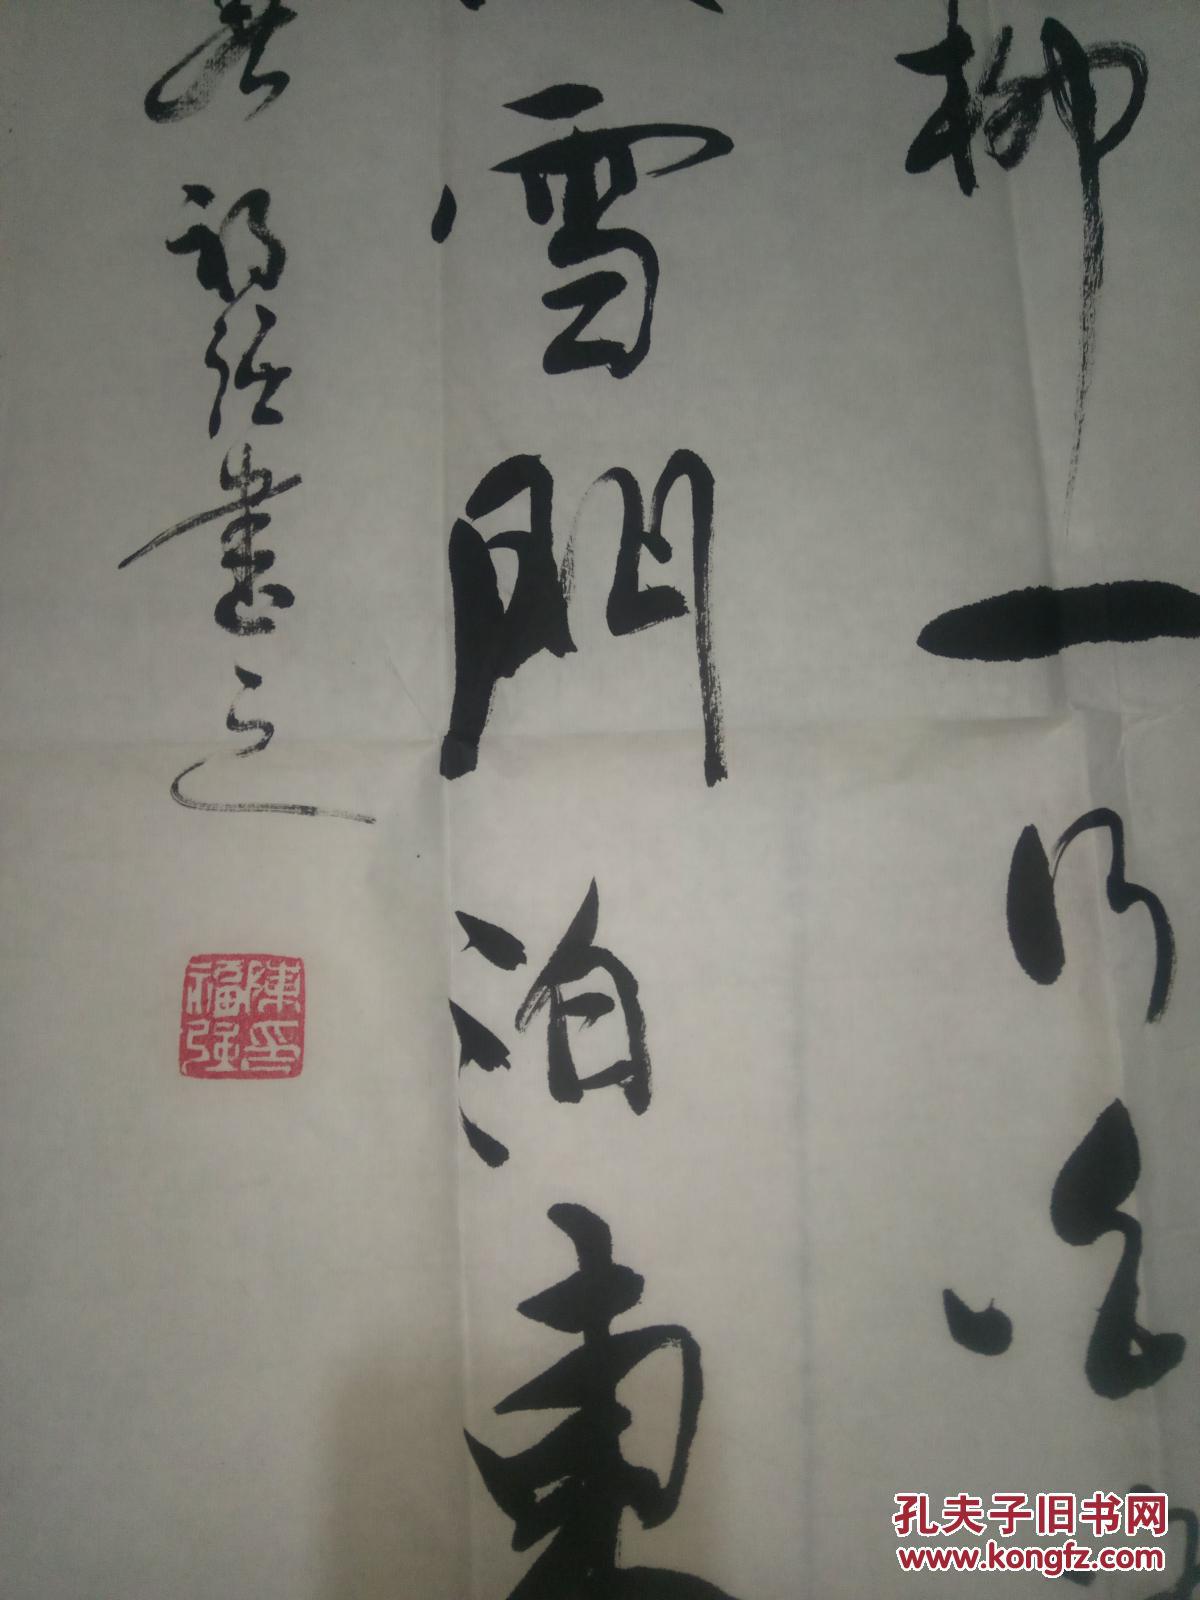 柳一行白
雪門泊東
福强書之
陳印
福强
孔夫子旧书网
www.kongfz.com